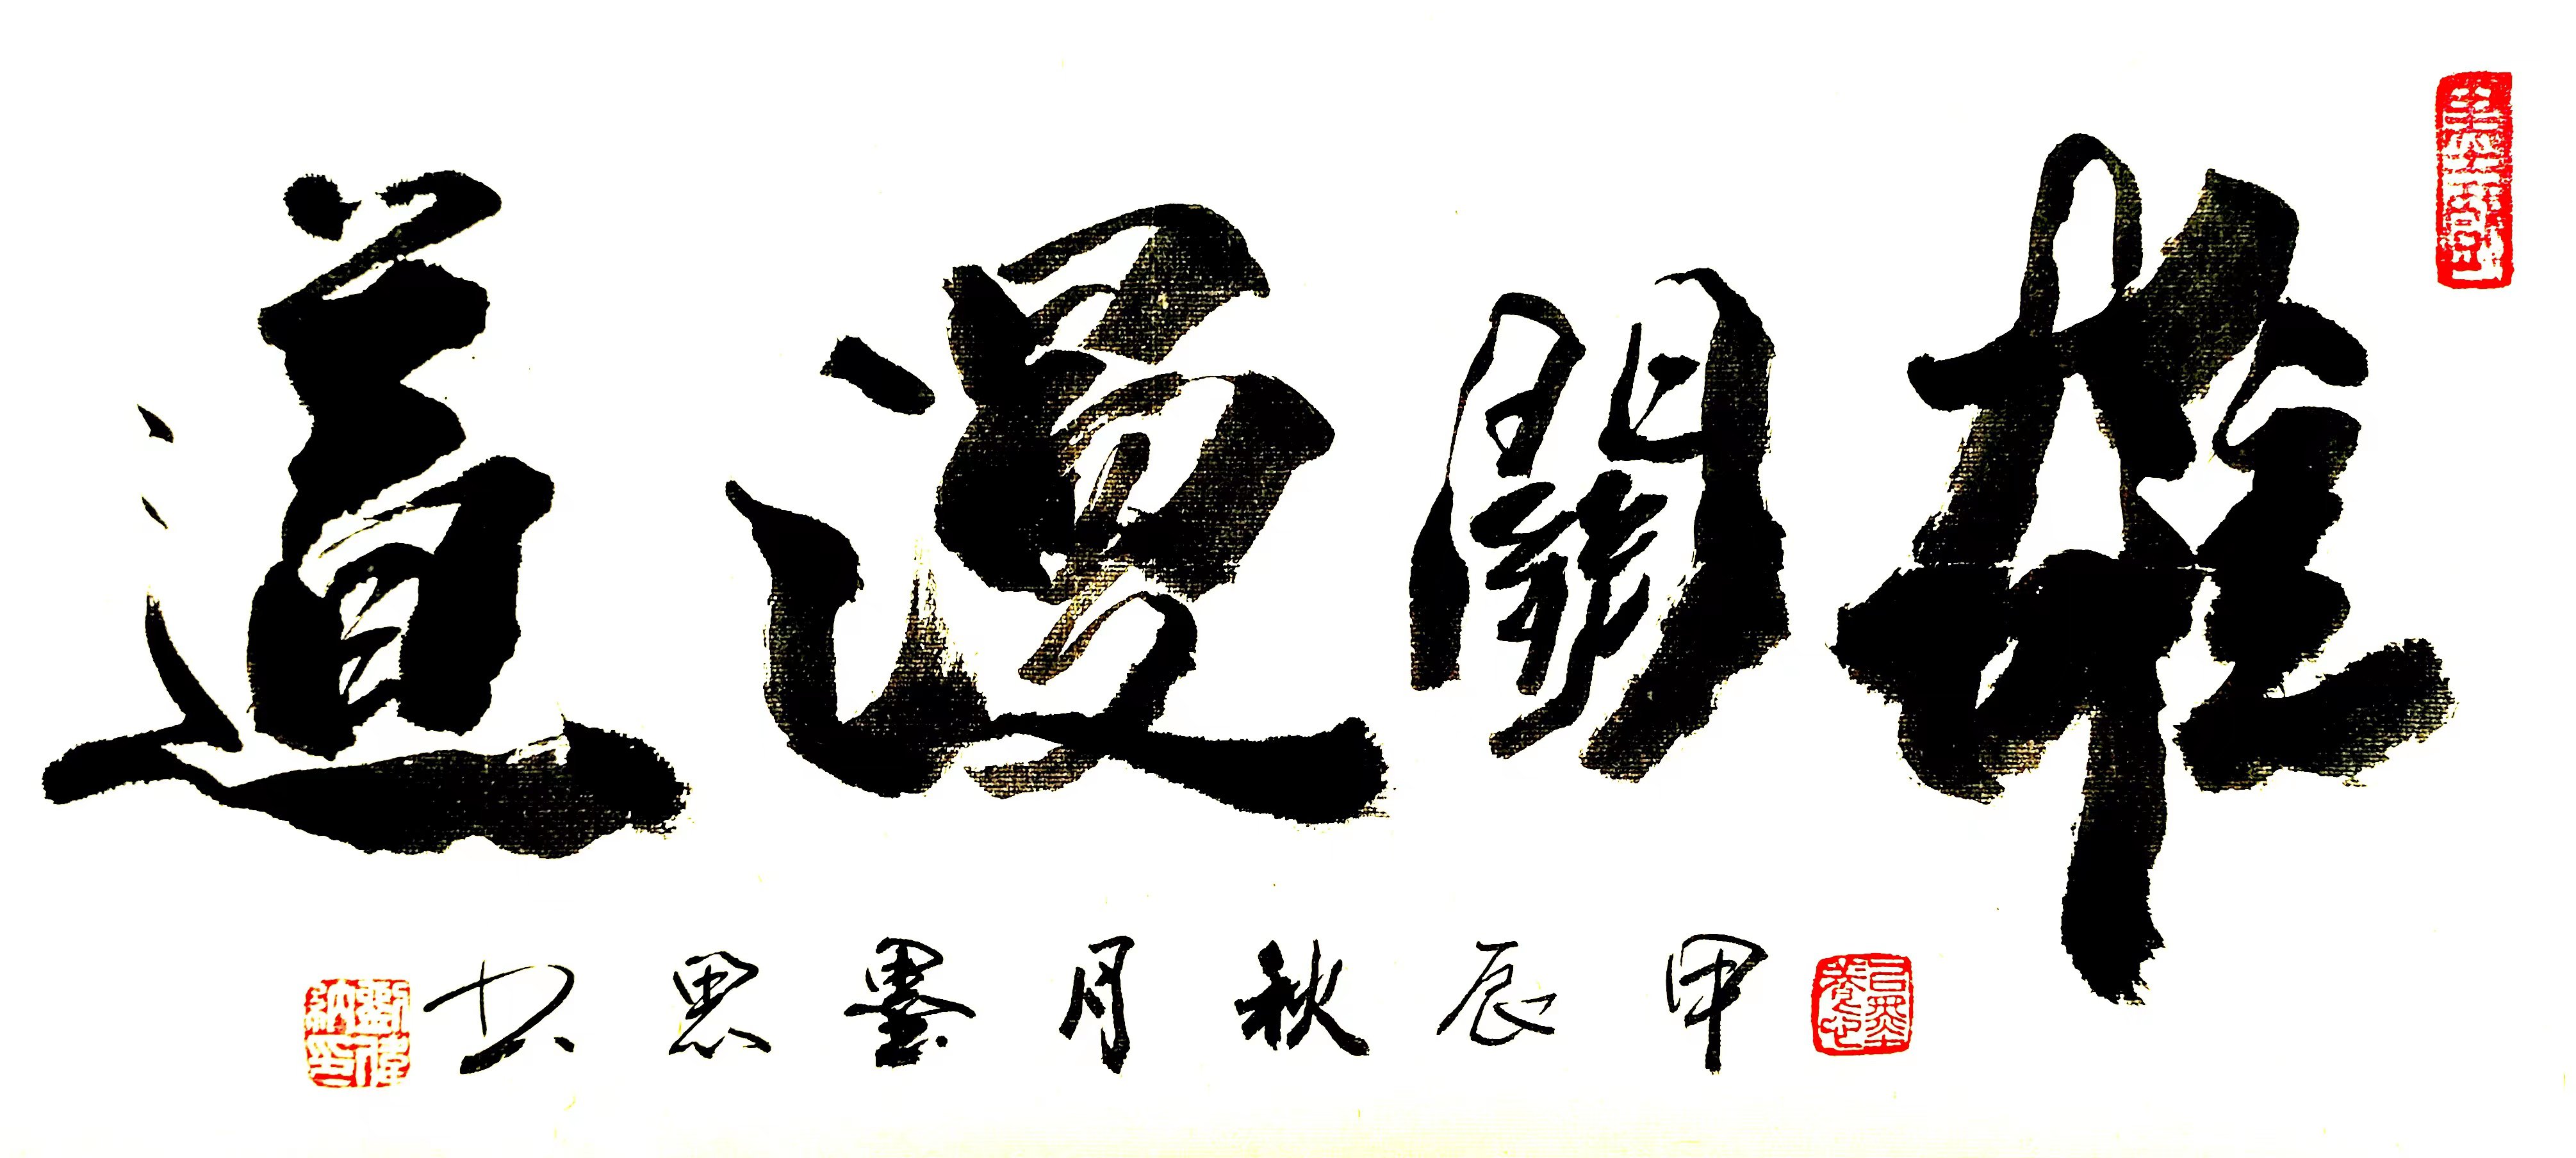 雄關漫道
甲辰秋月墨思书